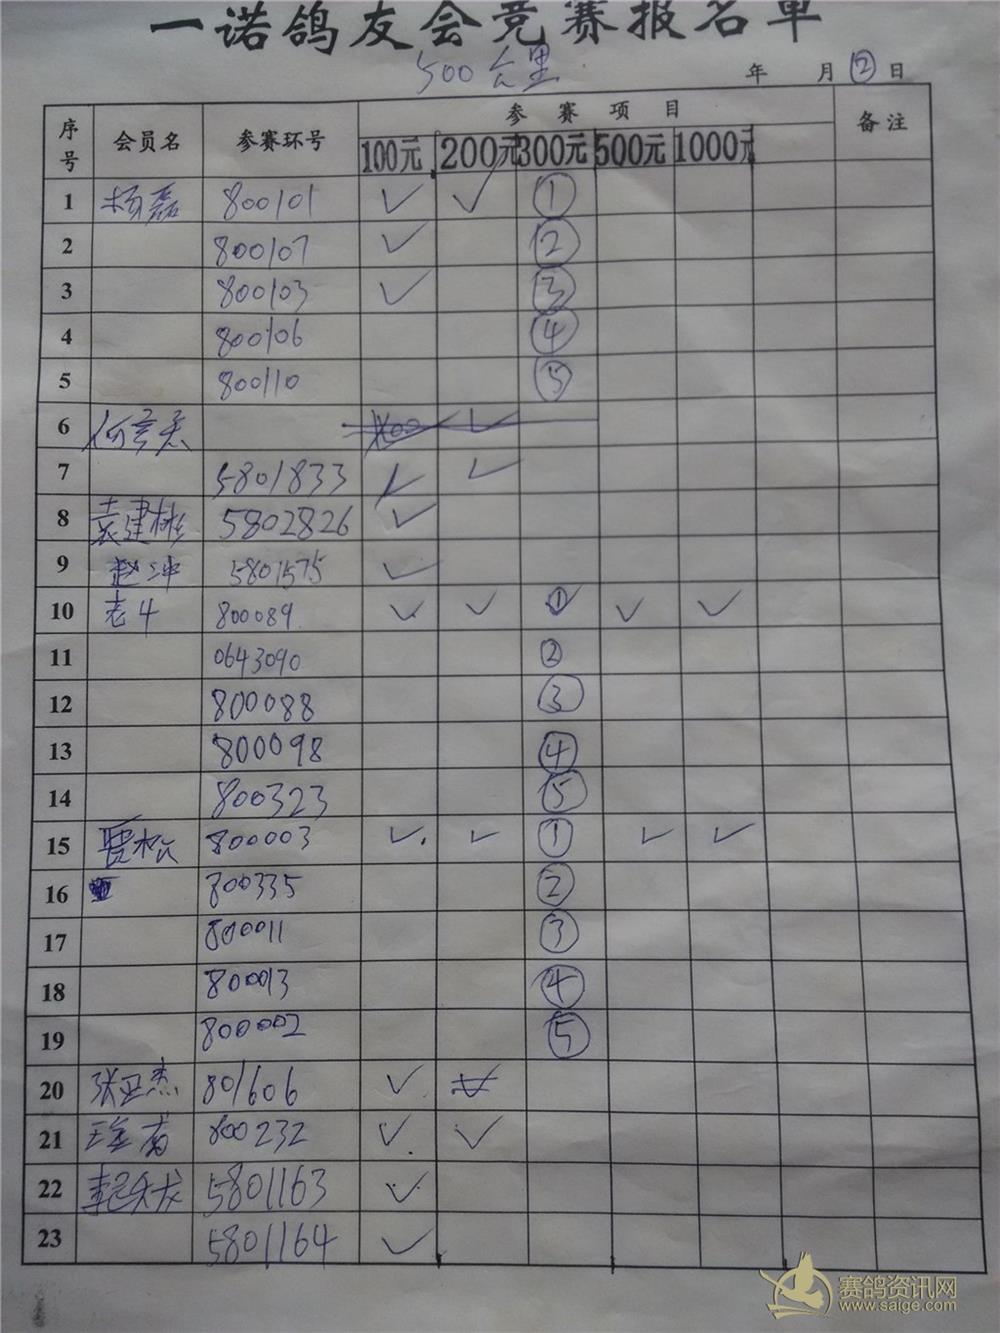 一诺鸽友会竞赛报名单
500公里
年 月 ② 日
序号 会员名 参赛环号 参赛项目 备注
100元 200元 300元 500元 1000元
1 杨磊 800101 ✓ ✓ ①
2 800107 ✓ ②
3 800103 ✓ ③
4 800106 ④
5 800110 ⑤
6 ✓
7 5801833 ✓ ✓
8 袁建彬 5802826 ✓
9 赵冲 5801575 ✓
10 老4 800089 ✓ ✓ ① ✓ ✓
11 0643090 ②
12 800088 ③
13 800098 ④
14 800323 ⑤
15 贾松 800003 ✓ ✓ ① ✓ ✓
16 800335 ②
17 800011 ③
18 800013 ④
19 800002 ⑤
20 张亚杰 801606 ✓
21 800232 ✓ ✓
22 5801163 ✓
23 5801164 ✓
赛鸽资讯网
www.saige.com